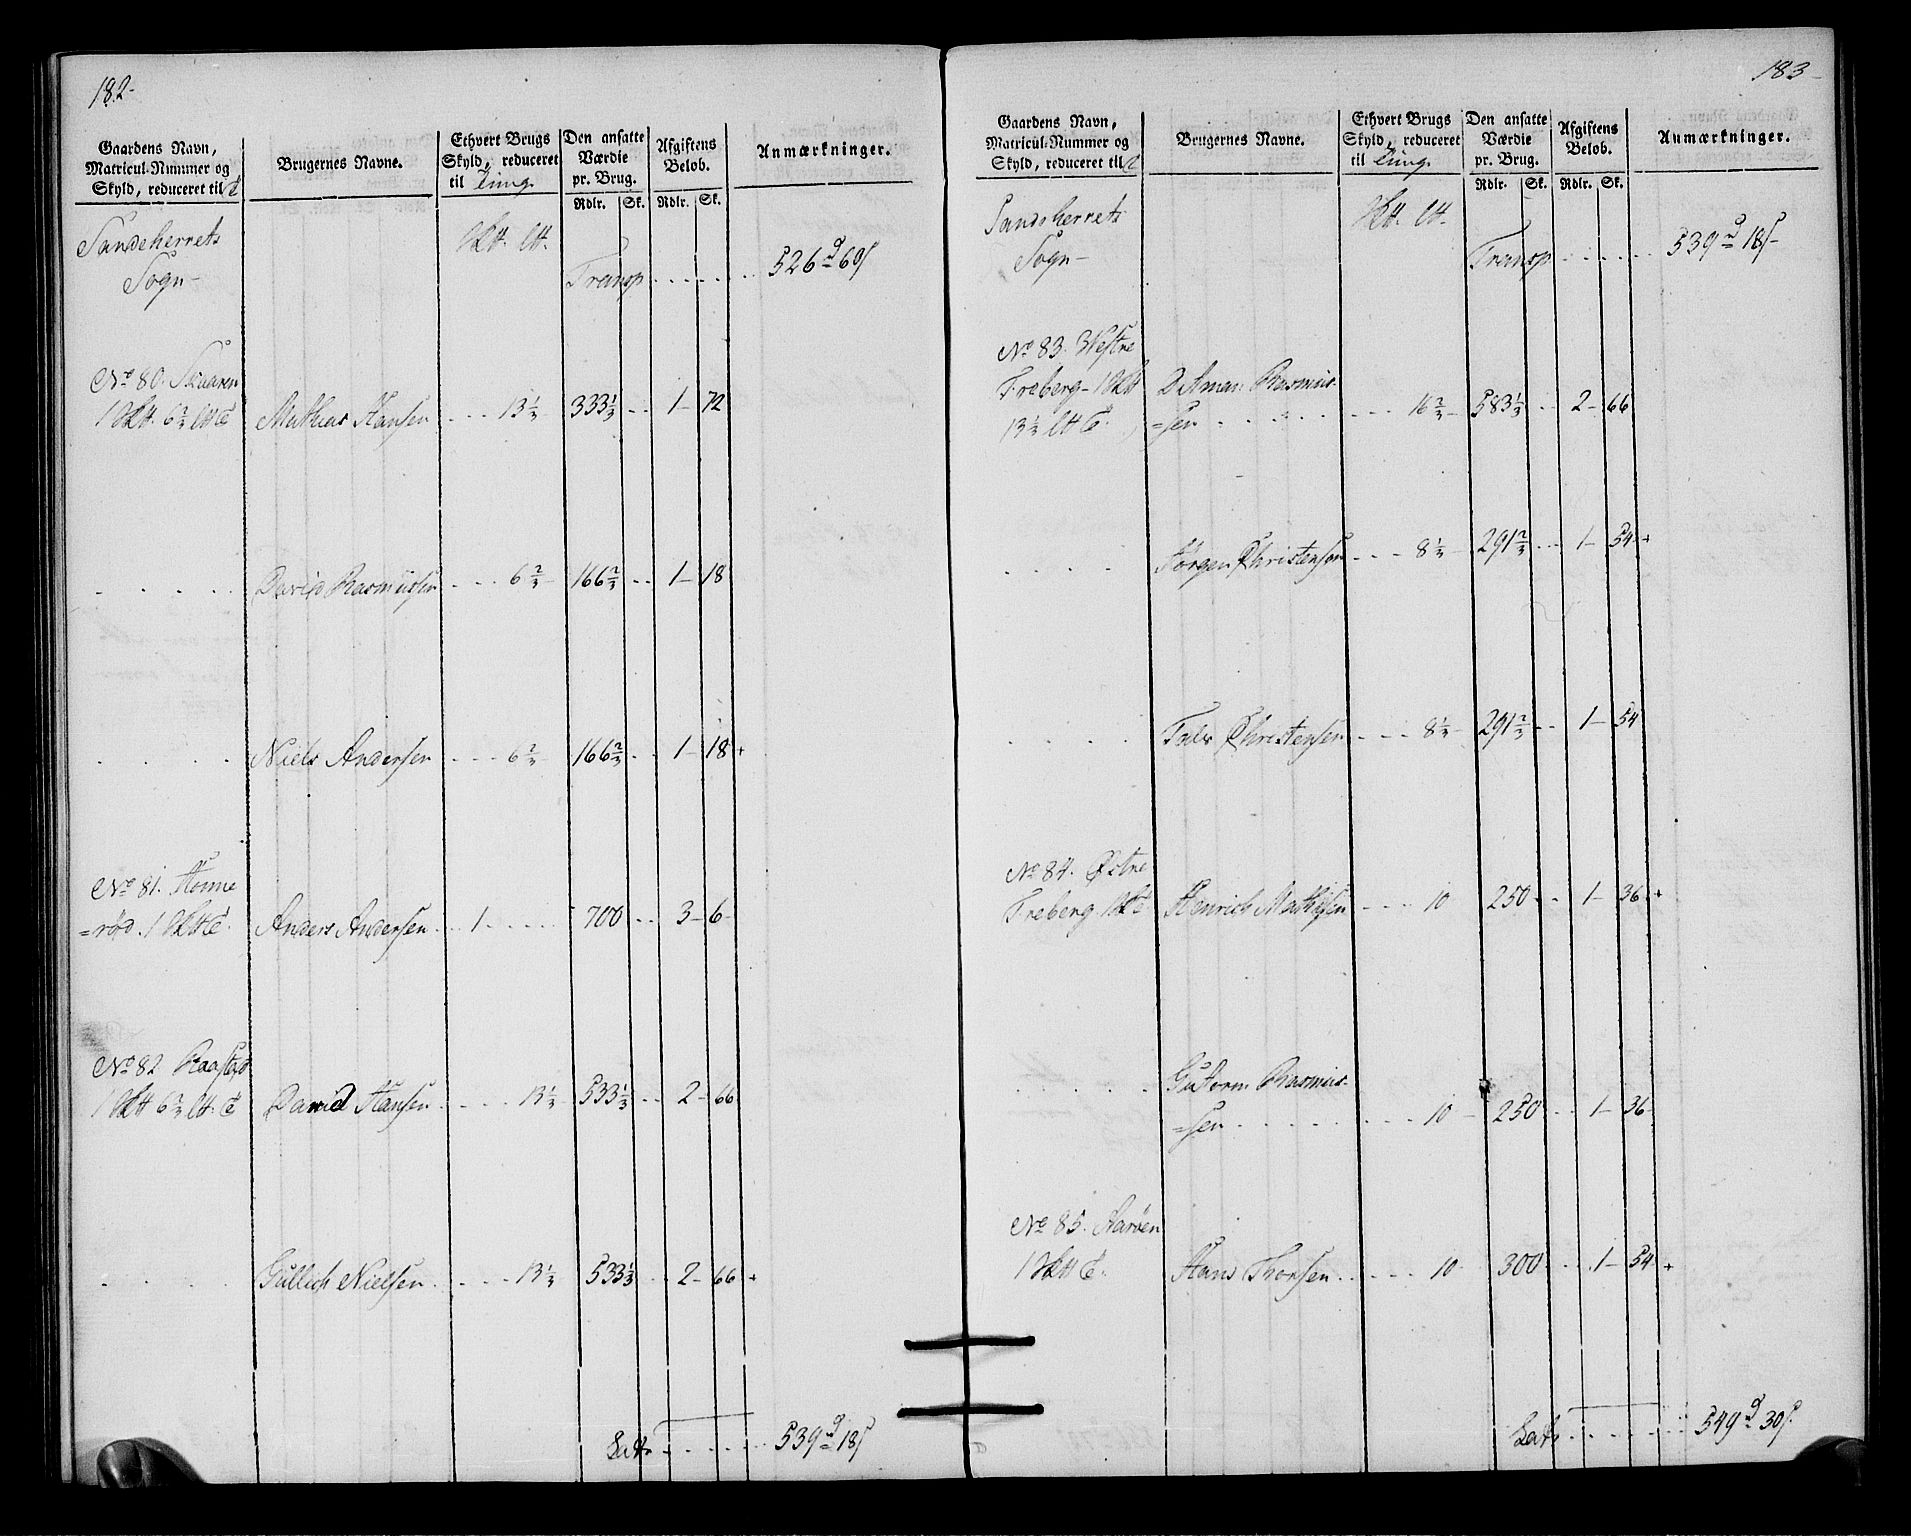 182-
Gaardens Navn,
Matricul-Nummer og
Skyld, reduceret til
Brugernes Navne.
Ethvert Brugs
Skyld, reduceret
til Tung
Den ansatte
Værdie
pr. Brug.
Rdlr. Sk.
Afgiftens
Beløb.
Rdlr. Sk.
Anmærkninger.
Sandeherrets
Sogn-
Transp ...... 526 d 60 s
No 80. Skaaren
6 2/3 Mathias Hansen ... 13 1/3 333 1/3 .. 1- 72
..... David Rasmussen ... 6 2/3 166 2/3 .. 1- 18
..... Niels Andersen ... 6 2/3 166 2/3 .. 1- 18 +
No 81. Honne
=rød. 1 Anders Andersen .. 1 ..... 700 .. 3- 6-
No 82 Raastad
6 2/3 David Hansen .... 13 1/3 533 1/3 .. 2- 66
..... Gullich Nielsen .... 13 1/3 533 1/3 .. 2- 66 +
Lats ...... 539 d 18 s
183-
Gaardens Navn,
Matricul-Nummer og
Skyld, reduceret til
Brugernes Navne.
Ethvert Brugs
Skyld, reduceret
til Tung
Den ansatte
Værdie
pr. Brug.
Rdlr. Sk.
Afgiftens
Beløb.
Rdlr. Sk.
Anmærkninger.
Sandsherrets
Sogn-
Transp ...... 539 d 18 s-
No 83. Westre
Freberg- 1 Rasmus-
13 1/3 =sen ...... 16 2/3 583 1/3 .. 2- 66
..... Jørgen Christensen ... 8 1/3 291 2/3 .. 1- 54 +
..... Christensen ... 8 1/3 291 2/3 .. 1- 54
No 84. Østre
Freberg. 1 Henrich Mathisen ... 10 250 .. 1- 36 +
..... Gutorm Rasmus-
=sen ........ 10 250 .. 1- 36
No 85. Aarøen
1 Hans Thorsen ..... 10 300 .. 1- 54 +
Lats ...... 549 d 30 s.